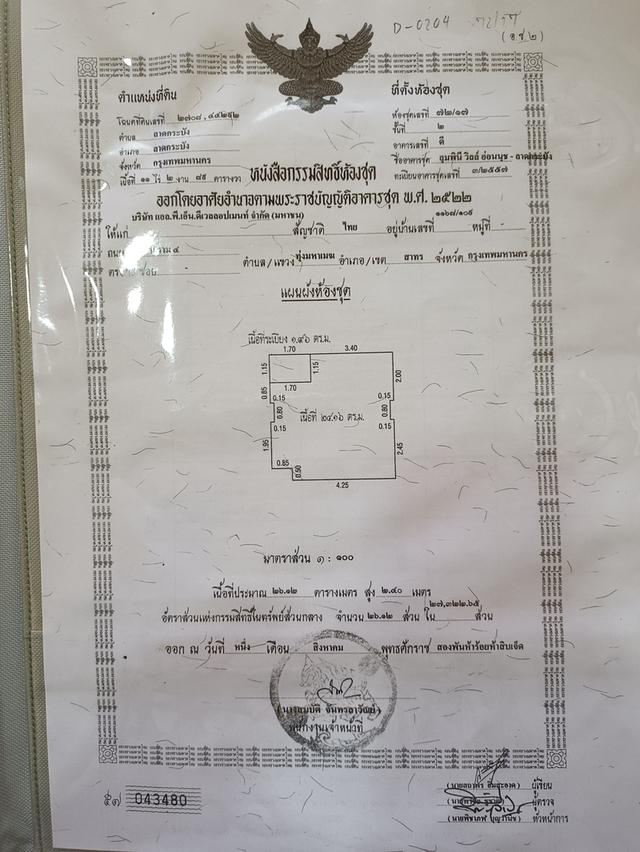 D-0204
(อ.ช.๒)
ตำแหน่งที่ดิน
ที่ตั้งห้องชุด
โฉนดที่ดินเลขที่ ๒๗๐๙,๔๔๒๒
ห้องชุดเลขที่ ๗๒/๑๗
ตำบล ลาดกระบัง
ชั้นที่ ๒
อำเภอ ลาดกระบัง
อาคารเลขที่ ดี
จังหวัด กรุงเทพมหานคร
ชื่ออาคารชุด ลุมพินี วิลล์ อ่อนนุช - ลาดกระบัง
เนื้อที่ ๑๑ ไร่ ๒ งาน ๗๙ ตารางวา
ทะเบียนอาคารชุดเลขที่ ๓/๒๕๕๗
หนังสือกรรมสิทธิ์ห้องชุด
ออกโดยอาศัยอำนาจตามพระราชบัญญัติอาคารชุด พ.ศ. ๒๕๒๒
บริษัท แอล.พี.เอ็น.ดีเวลลอปเมนท์ จำกัด (มหาชน)
๑๑๖๘/๑๐๙
ให้แก่ สัญชาติ ไทย อยู่บ้านเลขที่ หมู่ที่
ถนน พระราม ๔
ตรอก/ซอย ตำบล/แขวง ทุ่งมหาเมฆ อำเภอ/เขต สาทร จังหวัด กรุงเทพมหานคร
แผนผังห้องชุด
เนื้อที่ระเบียง ๑.๙๖ ตร.ม.
1.70 3.40
1.15 1.15
2.00
0.85 1.70
0.15 0.15
0.80 เนื้อที่ ๒๔.๑๖ ตร.ม. 0.80
0.15 0.15
1.95 2.45
0.85
0.50
4.25
มาตราส่วน ๑ : ๑๐๐
เนื้อที่ประมาณ ๒๖.๑๒ ตารางเมตร สูง ๒.๔๐ เมตร
๒๗,๓๒๒.๖๕
อัตราส่วนแห่งกรรมสิทธิ์ในทรัพย์ส่วนกลาง จำนวน ๒๖.๑๒ ส่วน ใน ส่วน
ออก ณ วันที่ หนึ่ง เดือน สิงหาคม พุทธศักราช สองพันห้าร้อยห้าสิบเจ็ด
(นางสมบัติ จันทรลาวัณย์)
พนักงานเจ้าหน้าที่
๕๗ 043480
ผู้เขียน
ผู้ตรวจ
หัวหน้าการ